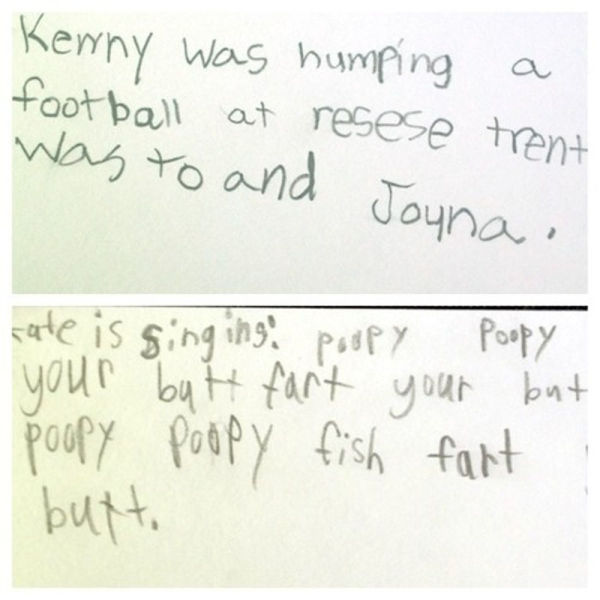 Kenny was humping a
football at resese trent
was to and Joyna.
ate is singing: poopy Poopy
your butt fart your but
poopy Poopy fish fart
butt.